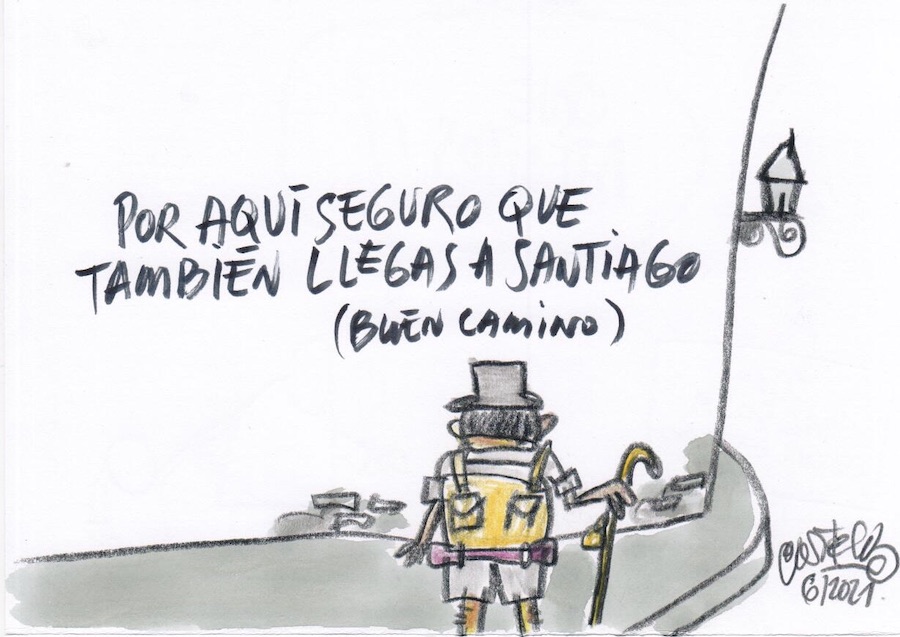 POR AQUÍ SEGURO QUE
TAMBIÉN LLEGAS A SANTIAGO
(BUEN CAMINO)
6/2021.